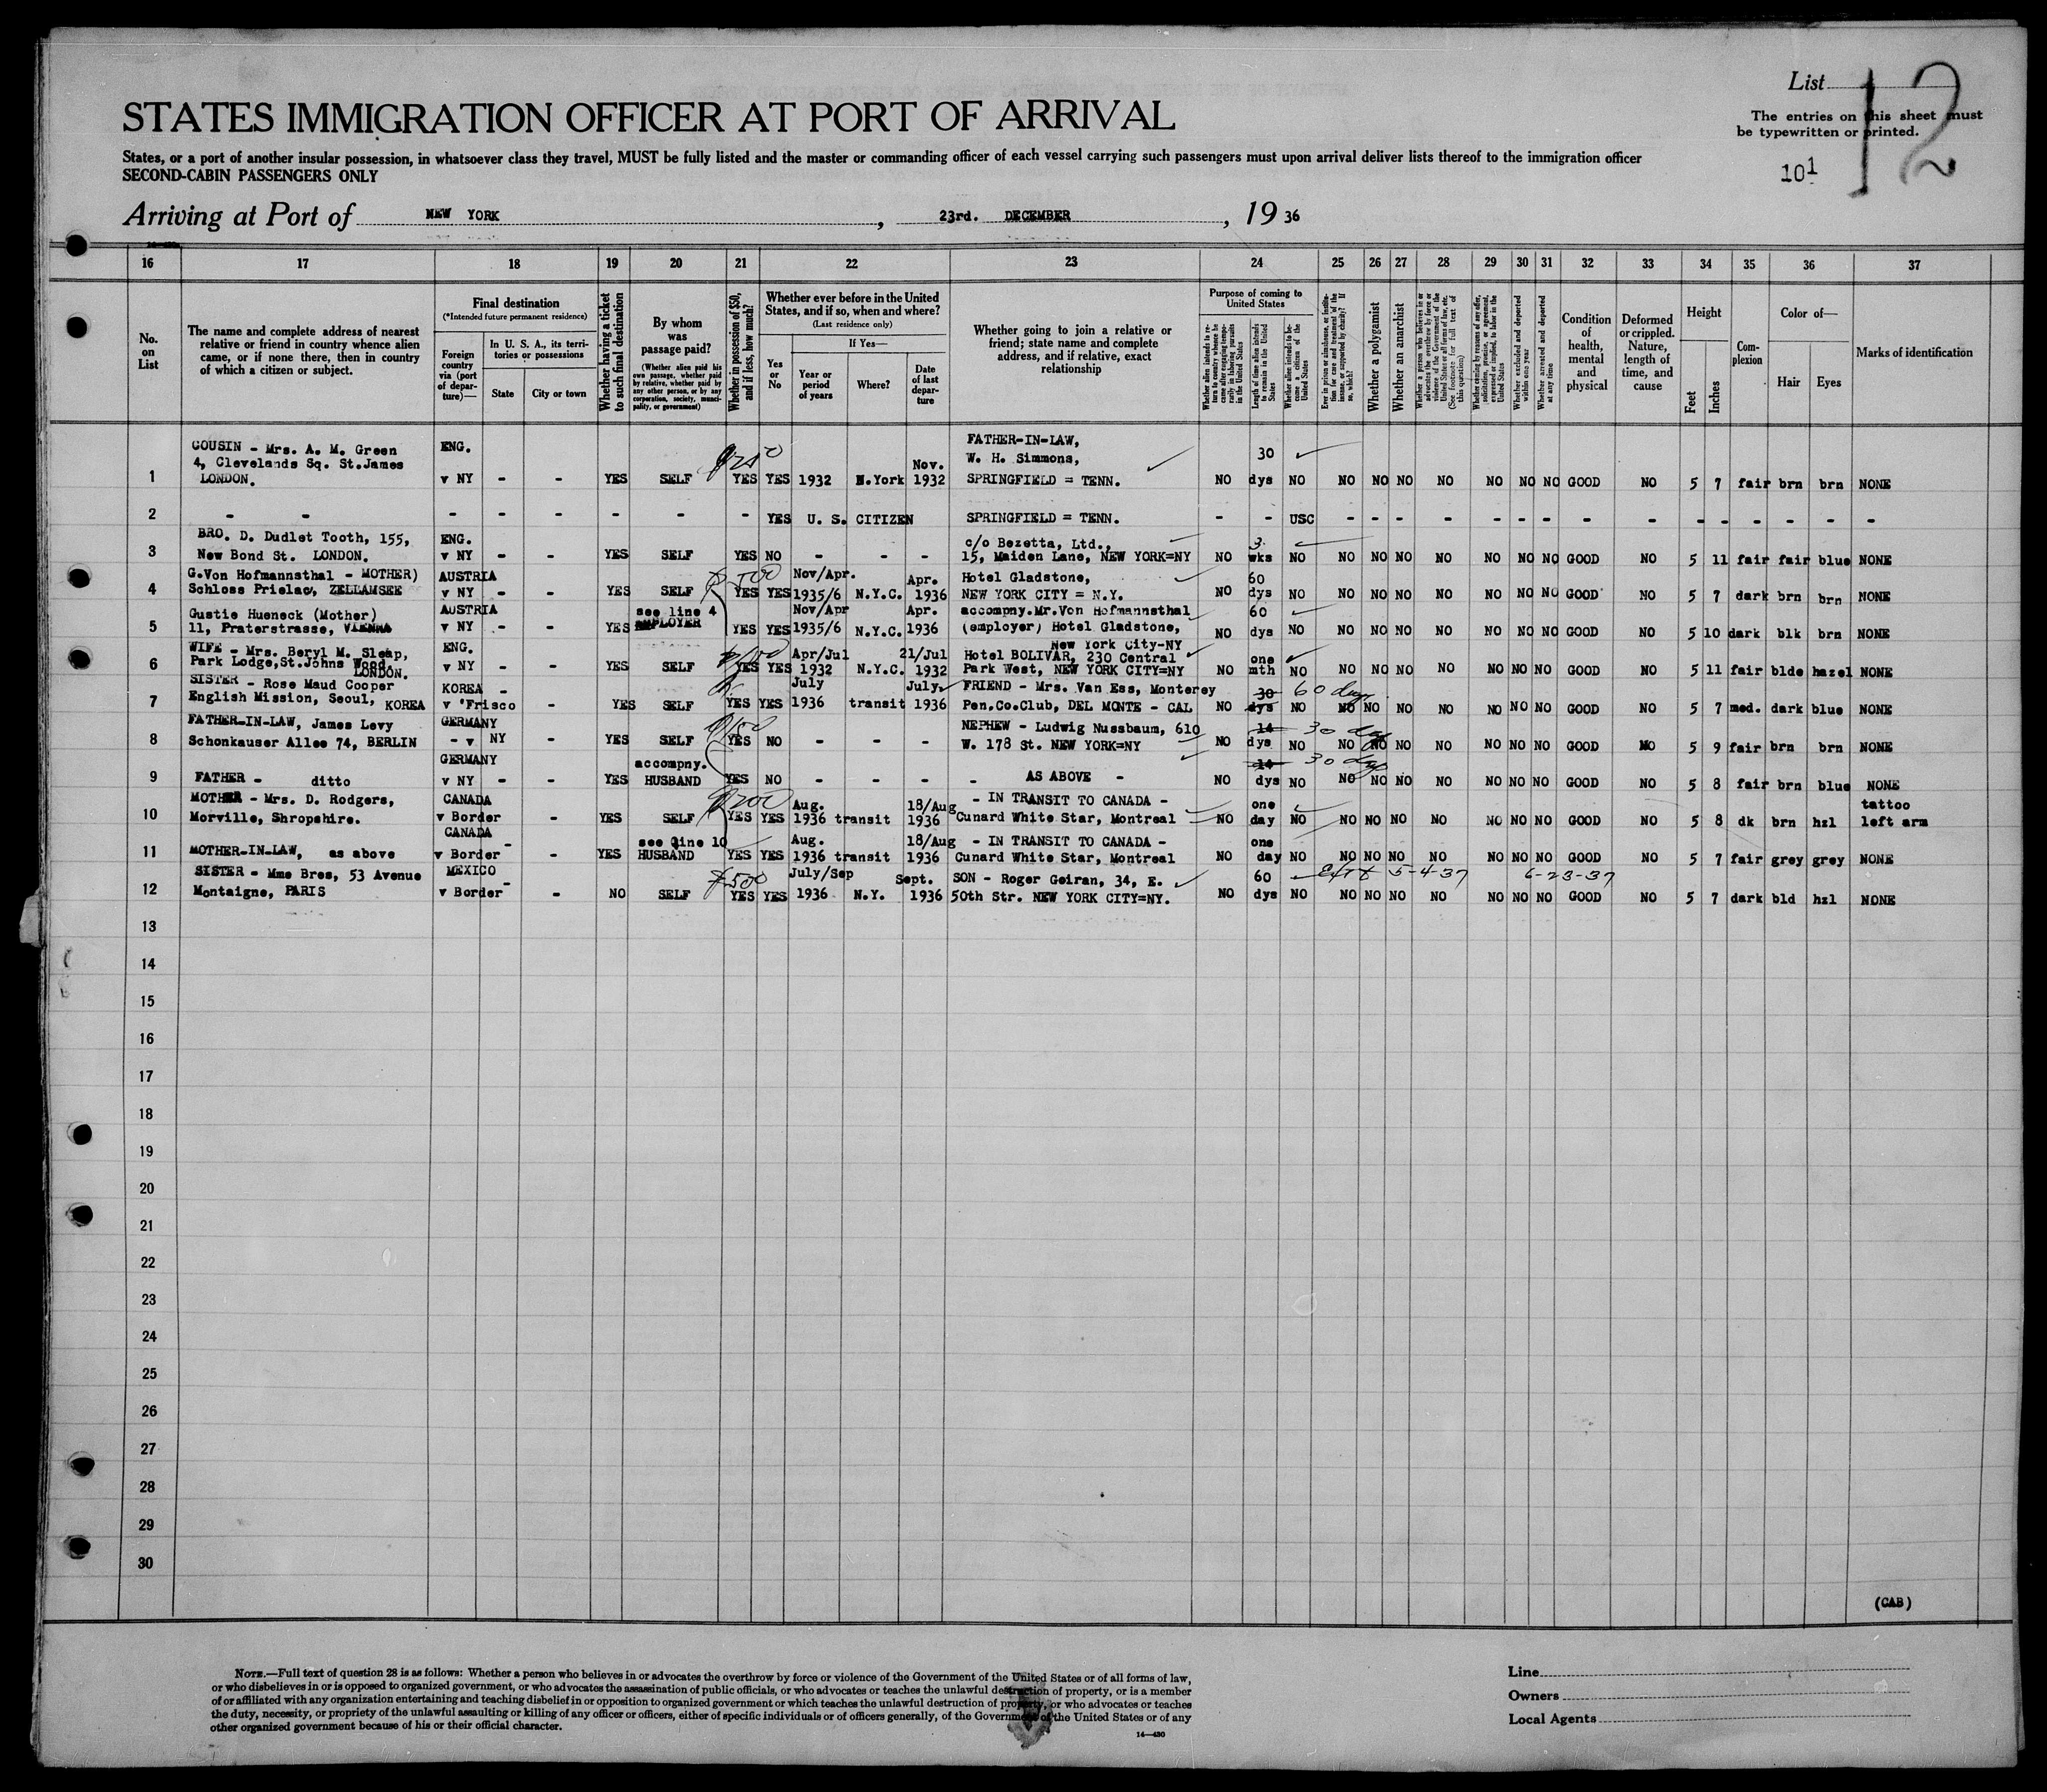 List 12
STATES IMMIGRATION OFFICER AT PORT OF ARRIVAL
The entries on this sheet must
be typewritten or printed.
States, or a port of another insular possession, in whatsoever class they travel, MUST be fully listed and the master or commanding officer of each vessel carrying such passengers must upon arrival deliver lists thereof to the immigration officer
SECOND-CABIN PASSENGERS ONLY
101
Arriving at Port of NEW YORK, 23rd. DECEMBER, 1936
16 17 18 19 20 21 22 23 24 25 26 27 28 29 30 31 32 33 34 35 36 37
No. on List
The name and complete address of nearest relative or friend in country whence alien came, or if none there, then in country of which a citizen or subject.
Final destination
(*Intended future permanent residence)
Foreign country via (port of departure)—
In U. S. A., its territories or possessions
State
City or town
Whether having a ticket to such final destination
By whom was passage paid?
(Whether alien paid his own passage, whether paid by relative, whether paid by any other person, or by any corporation, society, municipality, or government)
Whether in possession of $50, and if less, how much?
Whether ever before in the United States, and if so, when and where?
(Last residence only)
Yes or No
If Yes—
Year or period of years
Where?
Date of last departure
Whether going to join a relative or friend; state name and complete address, and if relative, exact relationship
Purpose of coming to United States
Whether alien intends to return to country whence he came after engaging temporarily in laboring pursuits in the United States
Length of time alien intends to remain in the United States
Whether alien intends to become a citizen of the United States
Ever in prison or almshouse, or institution for care and treatment of the insane, or supported by charity? If so, which?
Whether a polygamist
Whether an anarchist
Whether a person who believes in or advocates the overthrow by force or violence of the Government of the United States or all forms of law, etc. (See footnote for full text of this question)
Whether coming by reasons of any offer, solicitation, promise, or agreement, expressed or implied, to labor in the United States
Whether excluded and deported within one year
Whether arrested and deported at any time
Condition of health, mental and physical
Deformed or crippled. Nature, length of time, and cause
Height
Feet
Inches
Complexion
Color of—
Hair
Eyes
Marks of identification
COUSIN - Mrs. A. M. Green ENG. FATHER-IN-LAW,
4, Clevelands Sq. St.James $250 Nov. W. H. Simmons, 30
1 LONDON. v NY - - YES SELF YES YES 1932 N.York 1932 SPRINGFIELD = TENN. NO dys NO NO NO NO NO NO NO NO GOOD NO 5 7 fair brn brn NONE
2 - - - - - - - - YES U. S. CITIZEN SPRINGFIELD = TENN. - - USC - - - - - - - - - - - - - - -
BRO. D. Dudlet Tooth, 155, ENG. c/o Bezetta, Ltd., 3
3 New Bond St. LONDON. v NY - - YES SELF YES NO - - - 15, Maiden Lane, NEW YORK=NY NO wks NO NO NO NO NO NO NO NO GOOD NO 5 11 fair fair blue NONE
G.Von Hofmannsthal - MOTHER) AUSTRIA $500 Nov/Apr. Apr. Hotel Gladstone, 60
4 Schloss Prielac, ZELLAMSEE v NY - - YES SELF YES YES 1935/6 N.Y.C. 1936 NEW YORK CITY = N.Y. NO dys NO NO NO NO NO NO NO NO GOOD NO 5 7 dark brn brn NONE
Gustie Hueneck (Mother) AUSTRIA see line 4 Nov/Apr Apr. accompny.Mr.Von Hofmannsthal 60
5 11, Praterstrasse, VIENNA v NY - - YES EMPLOYER YES YES 1935/6 N.Y.C. 1936 (employer) Hotel Gladstone, New York City-NY NO dys NO NO NO NO NO NO NO NO GOOD NO 5 10 dark blk brn NONE
WIFE - Mrs. Beryl M. Sleap, ENG. Apr/Jul 21/Jul Hotel BOLIVAR, 230 Central one
6 Park Lodge,St.Johns Wood LONDON. v NY - - YES SELF YES YES 1932 N.Y.C. 1932 Park West, NEW YORK CITY=NY NO mth NO NO NO NO NO NO NO NO GOOD NO 5 11 fair blde hazel NONE
SISTER - Rose Maud Cooper KOREA - July July FRIEND - Mrs. Van Ess, Monterey 30 60 days
7 English Mission, Seoul, KOREA v 'Frisco - YES SELF YES YES 1936 transit 1936 Pen.Co.Club, DEL MONTE - CAL NO dys NO NO NO NO NO NO NO NO GOOD NO 5 7 med. dark blue NONE
FATHER-IN-LAW, James Levy GERMANY $150 NEPHEW - Ludwig Nussbaum, 610 14 30 day
8 Schonkauser Allee 74, BERLIN - v NY - YES SELF YES NO - - - W. 178 St. NEW YORK=NY NO dys NO NO NO NO NO NO NO NO GOOD NO 5 9 fair brn brn NONE
GERMANY accompny. 14 30 day
9 FATHER - ditto v NY - - YES HUSBAND YES NO - - - - AS ABOVE - NO dys NO NO NO NO NO NO NO NO GOOD NO 5 8 fair brn blue NONE
MOTHER - Mrs. D. Rodgers, CANADA $200 Aug. 18/Aug - IN TRANSIT TO CANADA - one tattoo
10 Morville, Shropshire. v Border - YES SELF YES YES 1936 transit 1936 Cunard White Star, Montreal NO day NO NO NO NO NO NO NO NO GOOD NO 5 8 dk brn hzl left arm
CANADA see line 10 Aug. 18/Aug - IN TRANSIT TO CANADA - one
11 MOTHER-IN-LAW, as above v Border - - YES HUSBAND YES YES 1936 transit 1936 Cunard White Star, Montreal NO day NO NO NO NO NO NO NO NO GOOD NO 5 7 fair grey grey NONE
SISTER - Mme Bres, 53 Avenue MEXICO $500 July/Sep Sept. SON - Roger Geiran, 34, E. 60 Ext 5-4-37 6-23-37
12 Montaigne, PARIS v Border - - NO SELF YES YES 1936 N.Y. 1936 50th Str. NEW YORK CITY=NY. NO dys NO NO NO NO NO NO NO NO GOOD NO 5 7 dark bld hzl NONE
13
14
15
16
17
18
19
20
21
22
23
24
25
26
27
28
29
30
(CAB)
NOTE.—Full text of question 28 is as follows: Whether a person who believes in or advocates the overthrow by force or violence of the Government of the United States or of all forms of law,
or who disbelieves in or is opposed to organized government, or who advocates the assassination of public officials, or who advocates or teaches the unlawful destruction of property, or is a member
of or affiliated with any organization entertaining and teaching disbelief in or opposition to organized government or which teaches the unlawful destruction of property, or who advocates or teaches
the duty, necessity, or propriety of the unlawful assaulting or killing of any officer or officers, either of specific individuals or of officers generally, of the Government of the United States or of any
other organized government because of his or their official character.
14—430
Line
Owners
Local Agents